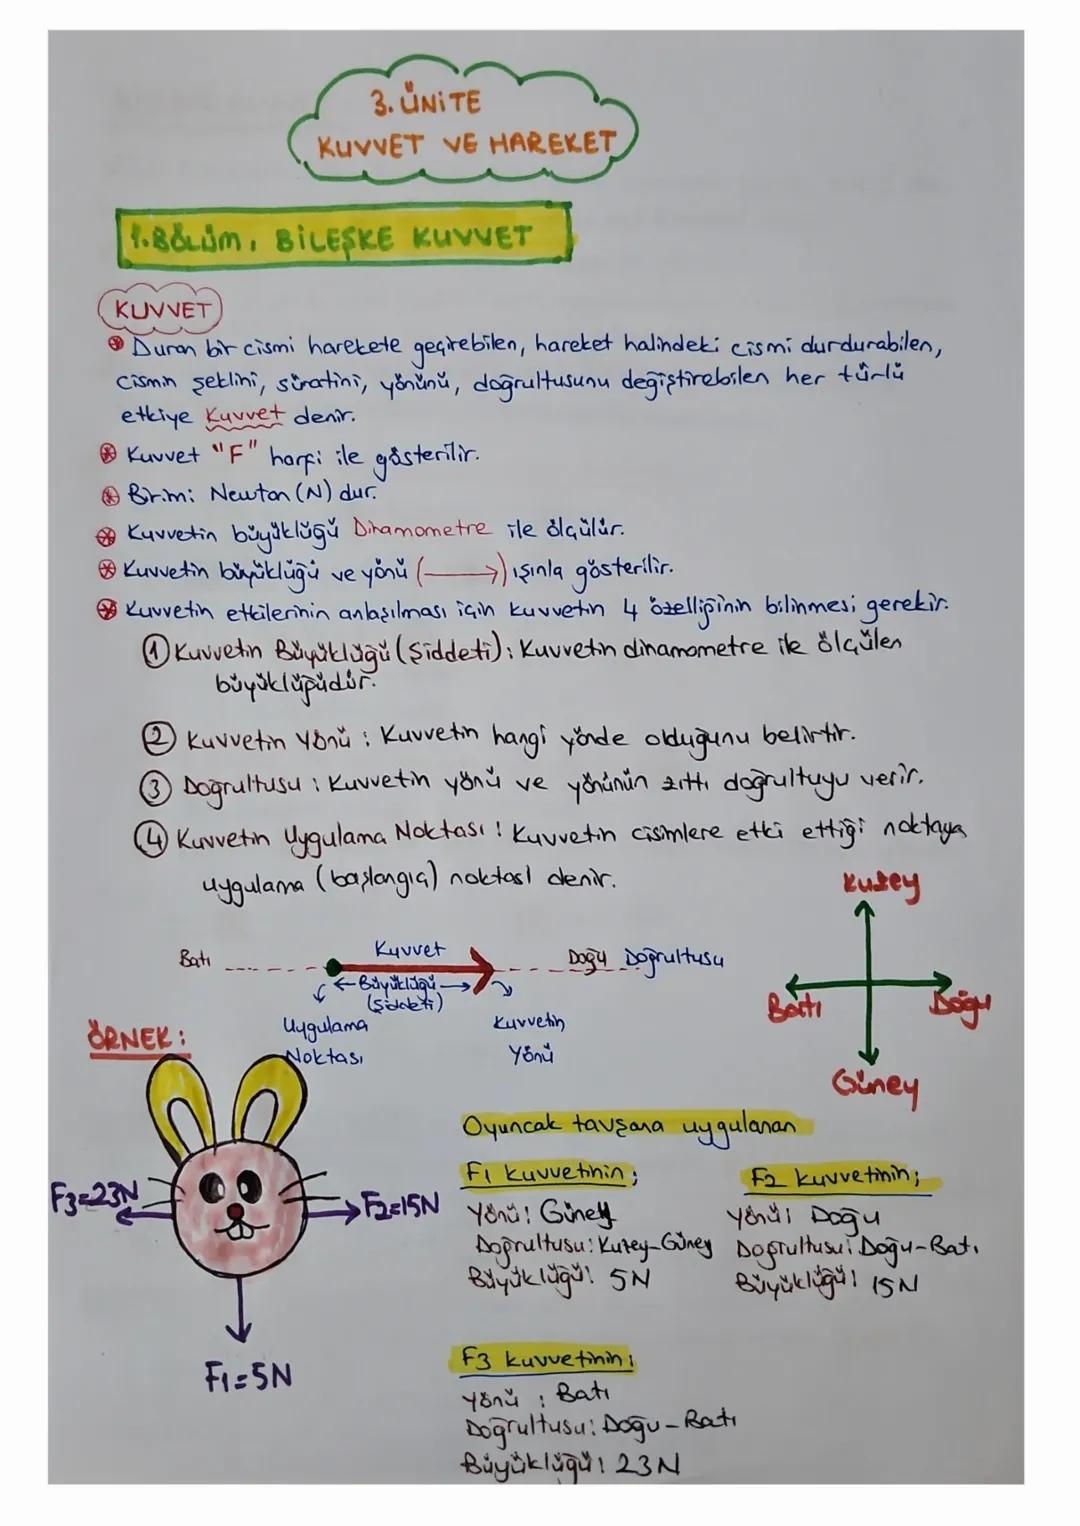 3. ÜNİTE
KUVVET VE HAREKET
1. BÖLÜM, BİLEŞKE KUVVET
KUVVET
Duran bir cismi harekete geçirebilen, hareket halindeki cismi durdurabilen,
cismin şeklini, süratini, yönünü, doğrultusunu değiştirebilen her türlü
etkiye Kuvvet denir.
Kuvvet "F" harfi ile gösterilir.
Birimi Newton (N) dur.
Kuvvetin büyüklüğü Dinamometre ile ölçülür.
Kuvvetin büyüklüğü ve yönü (⟶) ışınla gösterilir.
Kuvvetin etkilerinin anlaşılması için kuvvetin 4 özelliğinin bilinmesi gerekir.
① Kuvvetin Büyüklüğü (Şiddeti): Kuvvetin dinamometre ile ölçülen
büyüklüğüdür.
② Kuvvetin Yönü : Kuvvetin hangi yönde olduğunu belirtir.
③ Doğrultusu : Kuvvetin yönü ve yönünün zıttı doğrultuyu verir.
④ Kuvvetin Uygulama Noktası : Kuvvetin cisimlere etki ettiği noktaya
uygulama (başlangıç) noktası denir.
Kuzey
Batı Kuvvet Doğu Doğrultusu
Büyüklüğü
(Şiddeti)
Batı Doğu
Uygulama Noktası
Kuvvetin Yönü
Güney
ÖRNEK:
Oyuncak tavşana uygulanan
F1 kuvvetinin;
Yönü: Güney
Doğrultusu: Kuzey-Güney
Büyüklüğü: 5N
F2 kuvvetinin;
Yönü: Doğu
Doğrultusu: Doğu-Batı
Büyüklüğü: 15N
F3=23N
F2=15N
F1=5N
F3 kuvvetinin;
Yönü : Batı
Doğrultusu: Doğu-Batı
Büyüklüğü: 23N